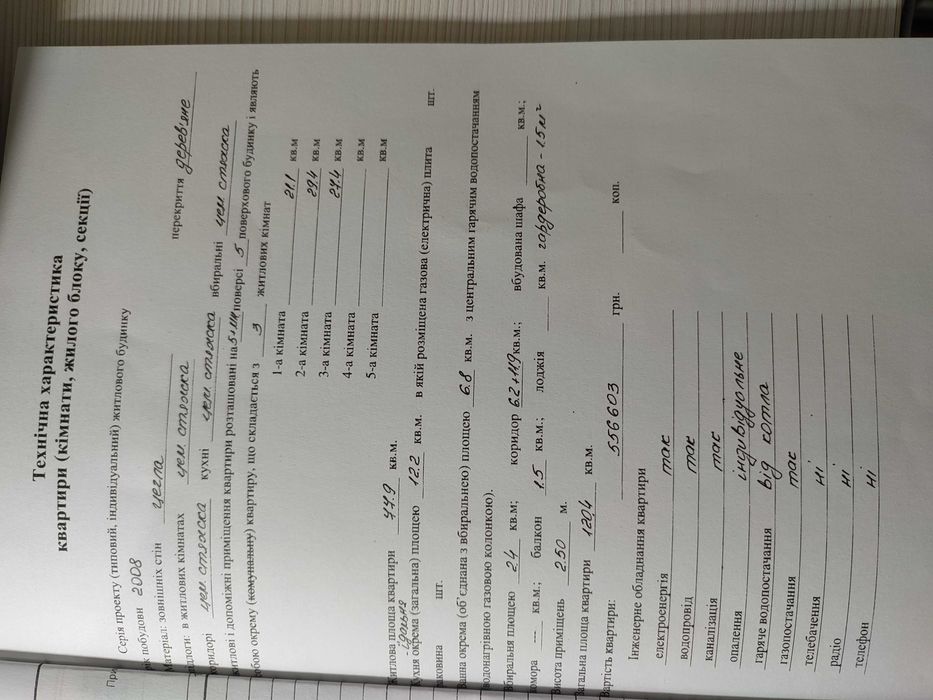 Технічна характеристика
квартири (кімнати, жилого блоку, секції)
Серія проекту (типовий, індивідуальний) житлового будинку
рік побудови 2008
Матеріал: зовнішніх стін цегла перекриття дерев'яне
підлоги: в житлових кімнатах цем стяжка
коридорі цем стяжка кухні цем стяжка вбиральні цем стяжка
житлові і допоміжні приміщення квартири розташовані на 5 + поверсі 5 поверхового будинку і являють
собою окрему (комунальну) квартиру, що складається з 3 житлових кімнат
1-а кімната 21.1 кв.м
2-а кімната 29.4 кв.м
3-а кімната 27.4 кв.м
4-а кімната кв.м
5-а кімната кв.м
Житлова площа квартири 77.9 кв.м.
- їдальня
Кухня окрема (загальна) площею 12.2 кв.м. в якій розміщена газова (електрична) плита шт.
раковина шт.
Ванна окрема (об'єднана з вбиральнею) площею 6.8 кв.м. з центральним гарячим водопостачанням
(водонагрівною газовою колонкою).
Вбиральня площею 2.4 кв.м; коридор 6.2+11.9 кв.м.; вбудована шафа кв.м.;
комора — кв.м.; балкон 1.5 кв.м.; лоджія кв.м. гардеробна - 1.5 м²
Висота приміщень 2.50 м.
Загальна площа квартири 120,4 кв.м.
Вартість квартири: 556603 грн. коп.
Інженерне обладнання квартири
електроенергія так
водопровід так
каналізація так
опалення індивідуальне
гаряче водопостачання від котла
газопостачання так
телебачення ні
радіо ні
телефон ні